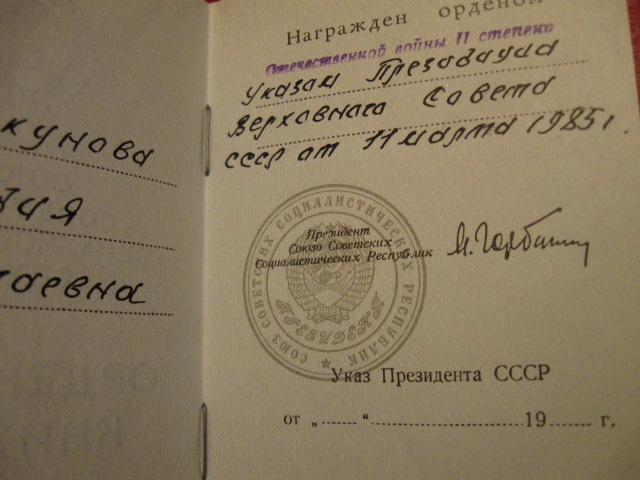 кунова
ия
аевна
Награжден орденом
Отечественной войны II степени
указом Президиума
Верховного Совета
СССР от 11 марта 1985 г.
СОЮЗ СОВЕТСКИХ СОЦИАЛИСТИЧЕСКИХ РЕСПУБЛИК
ПРЕЗИДЕНТ
Президент
Союза Советских
Социалистических Республик
М. Горбачев
Указ Президента СССР
от „ “ 19 г.